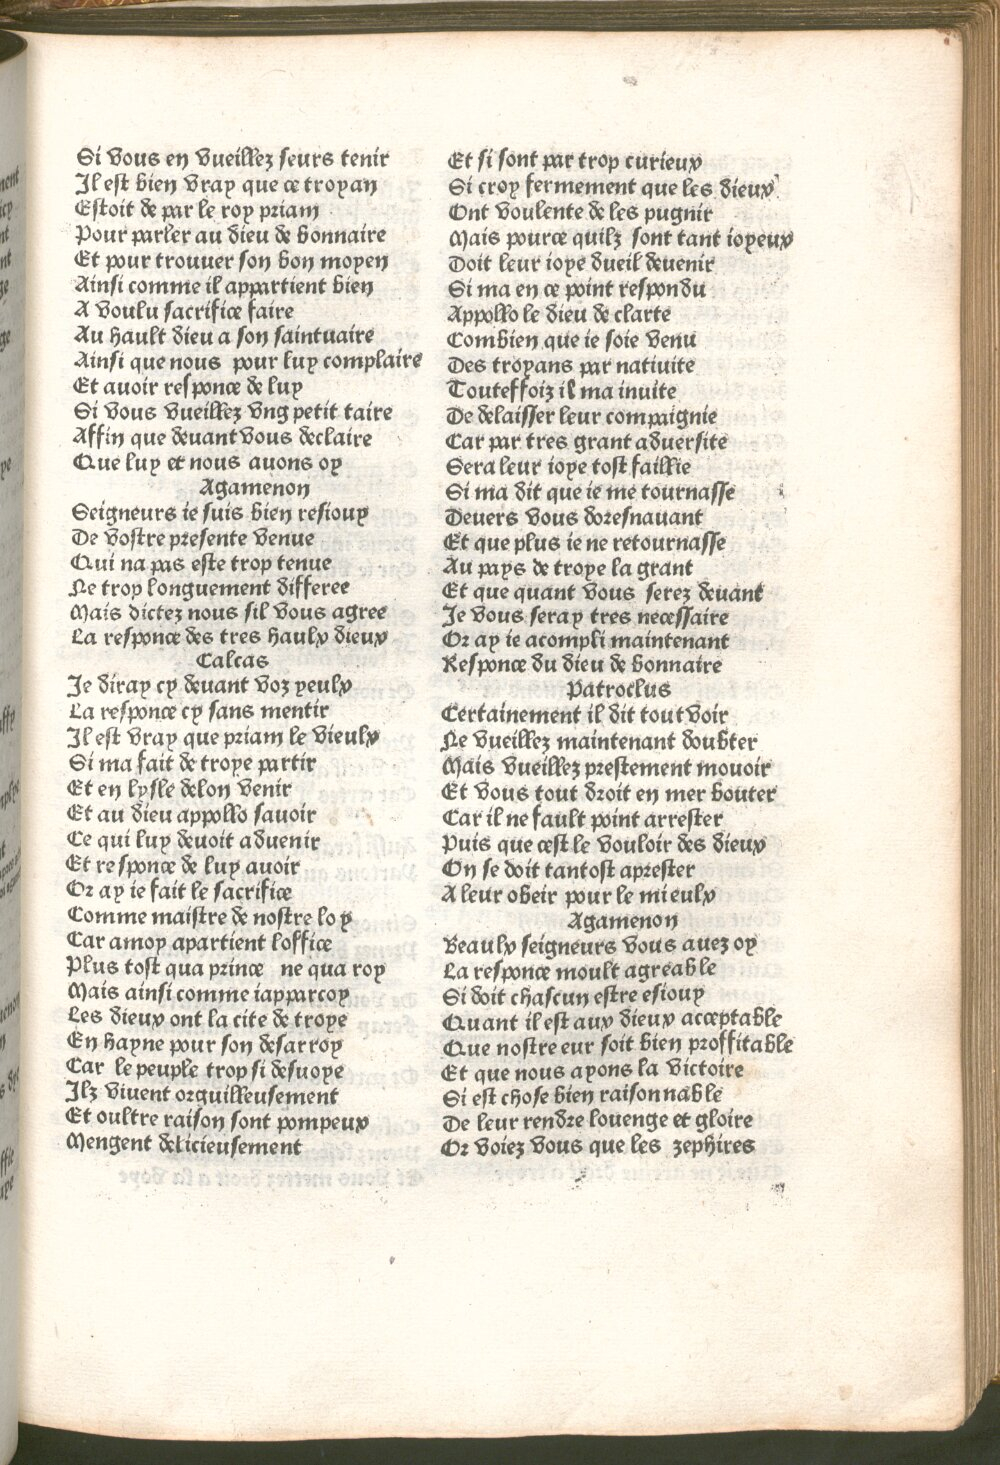 Si vous en vueillez seurs tenir
Il est bien vray que ce troyan
Estoit de par le roy priam
Pour parler au dieu de bonnaire
Et pour trouver son bon moyen
Ainsi comme il appartient bien
A voulu sacrifice faire
Au hault dieu a son saintuaire
Ainsi que nous pour luy complaire
Et auoir responce de luy
Si vous vueillez vng petit taire
Affin que deuant vous declaire
Que luy et nous auons oy
Agamenon
Seigneurs ie suis bien resiouy
De vostre presente venue
Qui na pas este trop tenue
Ne trop longuement differee
Mais dictez nous sil vous agree
La responce des tres haulx dieux
Calcas
Je diray cy deuant voz yeulx
La responce cy sans mentir
Il est vray que priam le vieulx
Si ma fait de troye partir
Et en lysle delon venir
Et au dieu appollo sauoir
Ce qui luy deuoit aduenir
Et responce de luy auoir
Or ay ie fait le sacrifice
Comme maistre de nostre loy
Car amoy apartient loffice
Plus tost qua prince ne qua roy
Mais ainsi comme iapparcoy
Les dieux ont la cite de troye
En hayne pour son desarroy
Car le peuple trop si desuoye
Ilz viuent orguilleusement
Et oultre raison sont pompeux
Mengent delicieusement
Et si sont par trop curieux
Si croy fermement que les dieux
Ont voulente de les pugnir
Mais pource quilz sont tant ioyeux
Doit leur ioye dueil deuenir
Si ma en ce point respondu
Appollo le dieu de clarte
Combien que ie soie venu
Des troyans par natiuite
Touteffoiz il ma inuite
De delaisser leur compaignie
Car par tres grant aduersite
Sera leur ioye tost faillie
Si ma dit que ie me tournasse
Deuers vous doresnauant
Et que plus ie ne retournasse
Au pays de troye la grant
Et que quant vous serez deuant
Je vous seray tres necessaire
Or ay ie acompli maintenant
Responce du dieu de bonnaire
Patroclus
Certainement il dit tout voir
Ne vueillez maintenant doubter
Mais vueillez prestement mouoir
Et vous tout droit en mer bouter
Car il ne fault point arrester
Puis que cest le vouloir des dieux
On se doit tantost aprester
A leur obeir pour le mieulx
Agamenon
Beaulx seigneurs vous auez oy
La responce moult agreable
Si doit chascun estre esiouy
Quant il est aux dieux acceptable
Que nostre eur soit bien proffitable
Et que nous ayons la victoire
Si est chose bien raisonnable
De leur rendre louenge et gloire
Or voiez vous que les zephires